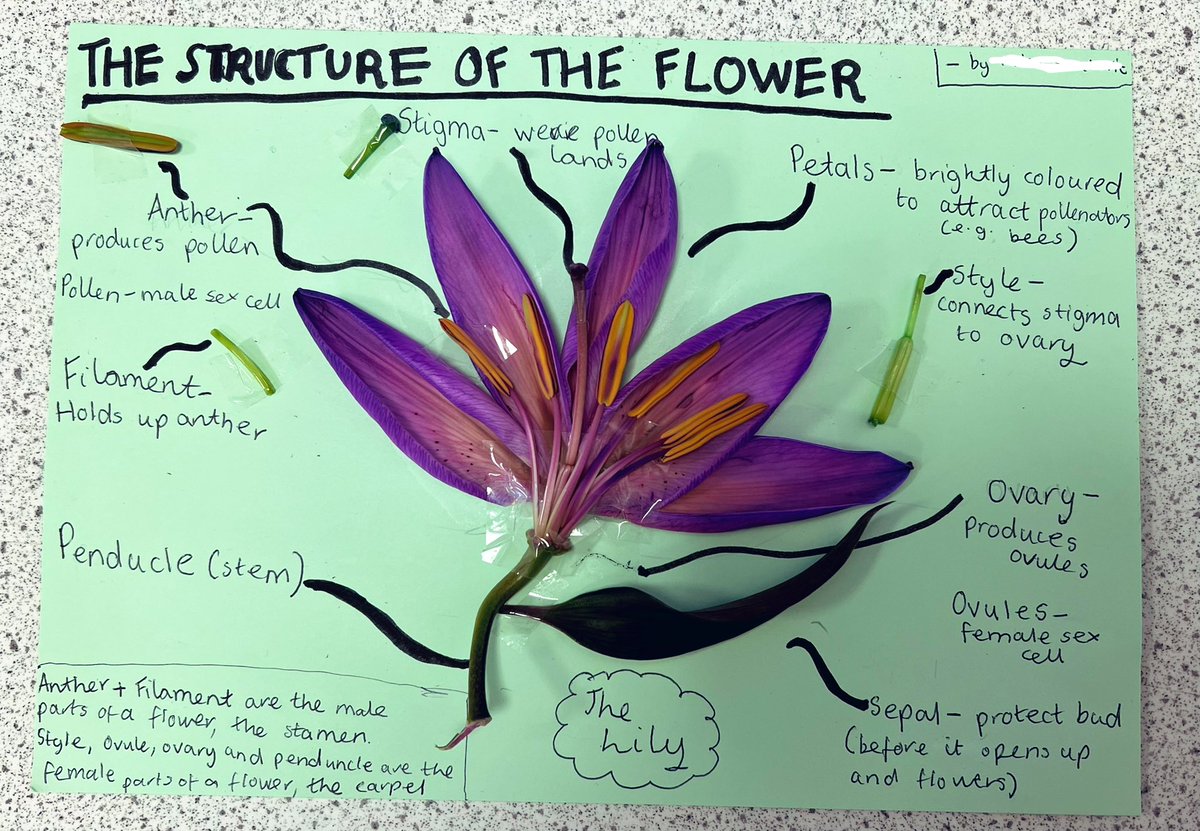 THE STRUCTURE OF THE FLOWER
- by
Stigma- were pollen
lands
Petals- brightly coloured
to attract pollenators
(e.g. bees)
Anther-
produces pollen
Pollen-male sex cell
Style-
connects stigma
to ovary
Filament-
Holds up anther
Ovary-
produces
ovules
Penducle (stem)
Ovules-
female sex
cell
Sepal- protect bud
(before it opens up
and flowers)
The
Lily
Anther + Filament are the male
parts of a flower, the stamen.
Style, ovule, ovary and penduncle are the
female parts of a flower, the carpel